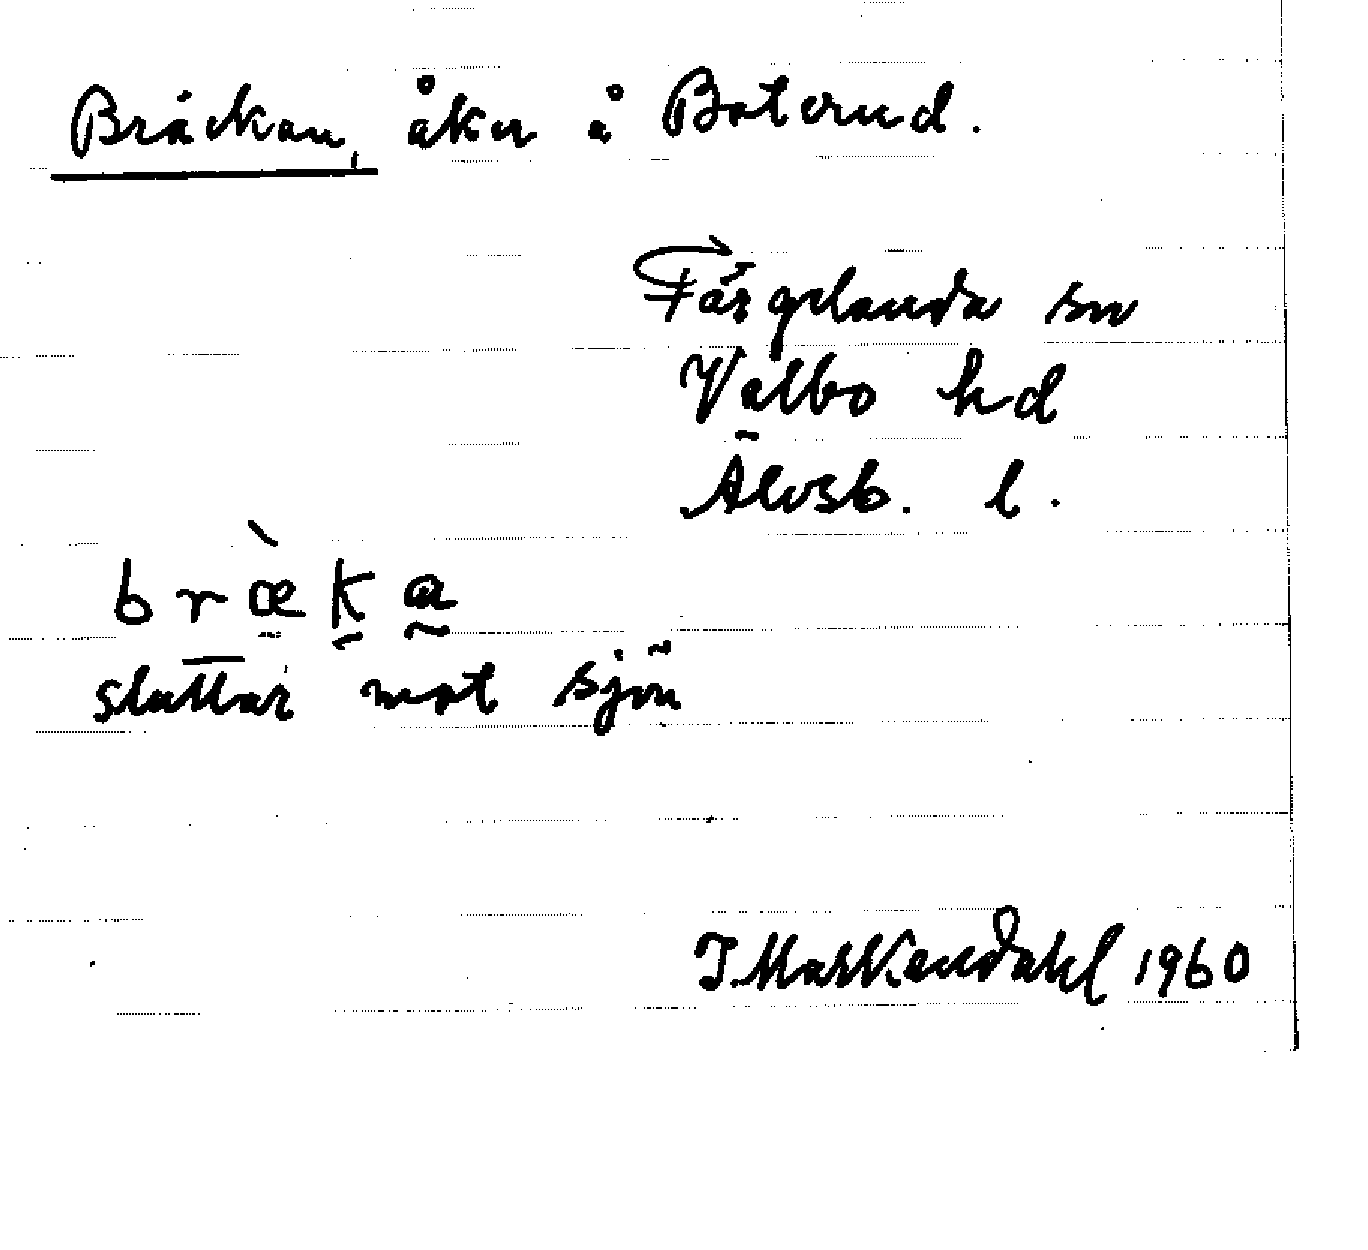 Bräckan, åker å Boterud.
Färgelanda sn
Valbo hd
Älvsb. l.
bræ̀ka
sluttar mot sjön
J. Markendahl 1960